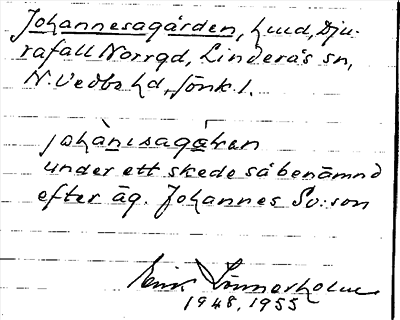 Johannesagården, hmd, Dju-
rafall Norrgd, Linderås sn,
N. Vedbo hd, Jönk. l.
johànısagá̊ɽen
under ett skede så benämnd
efter äg. Johannes Sv:son
Einar Linnerholm
1948, 1955